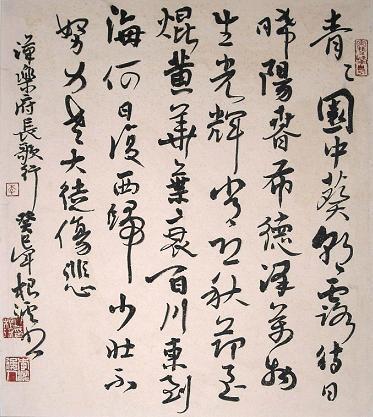 青々園中葵朝露待日
晞陽春布德澤萬物
生光輝常恐秋節至
焜黄華葉衰百川東到
海何日復西歸少壯不
努力老大徒傷悲
漢樂府長歌行 癸巳年根